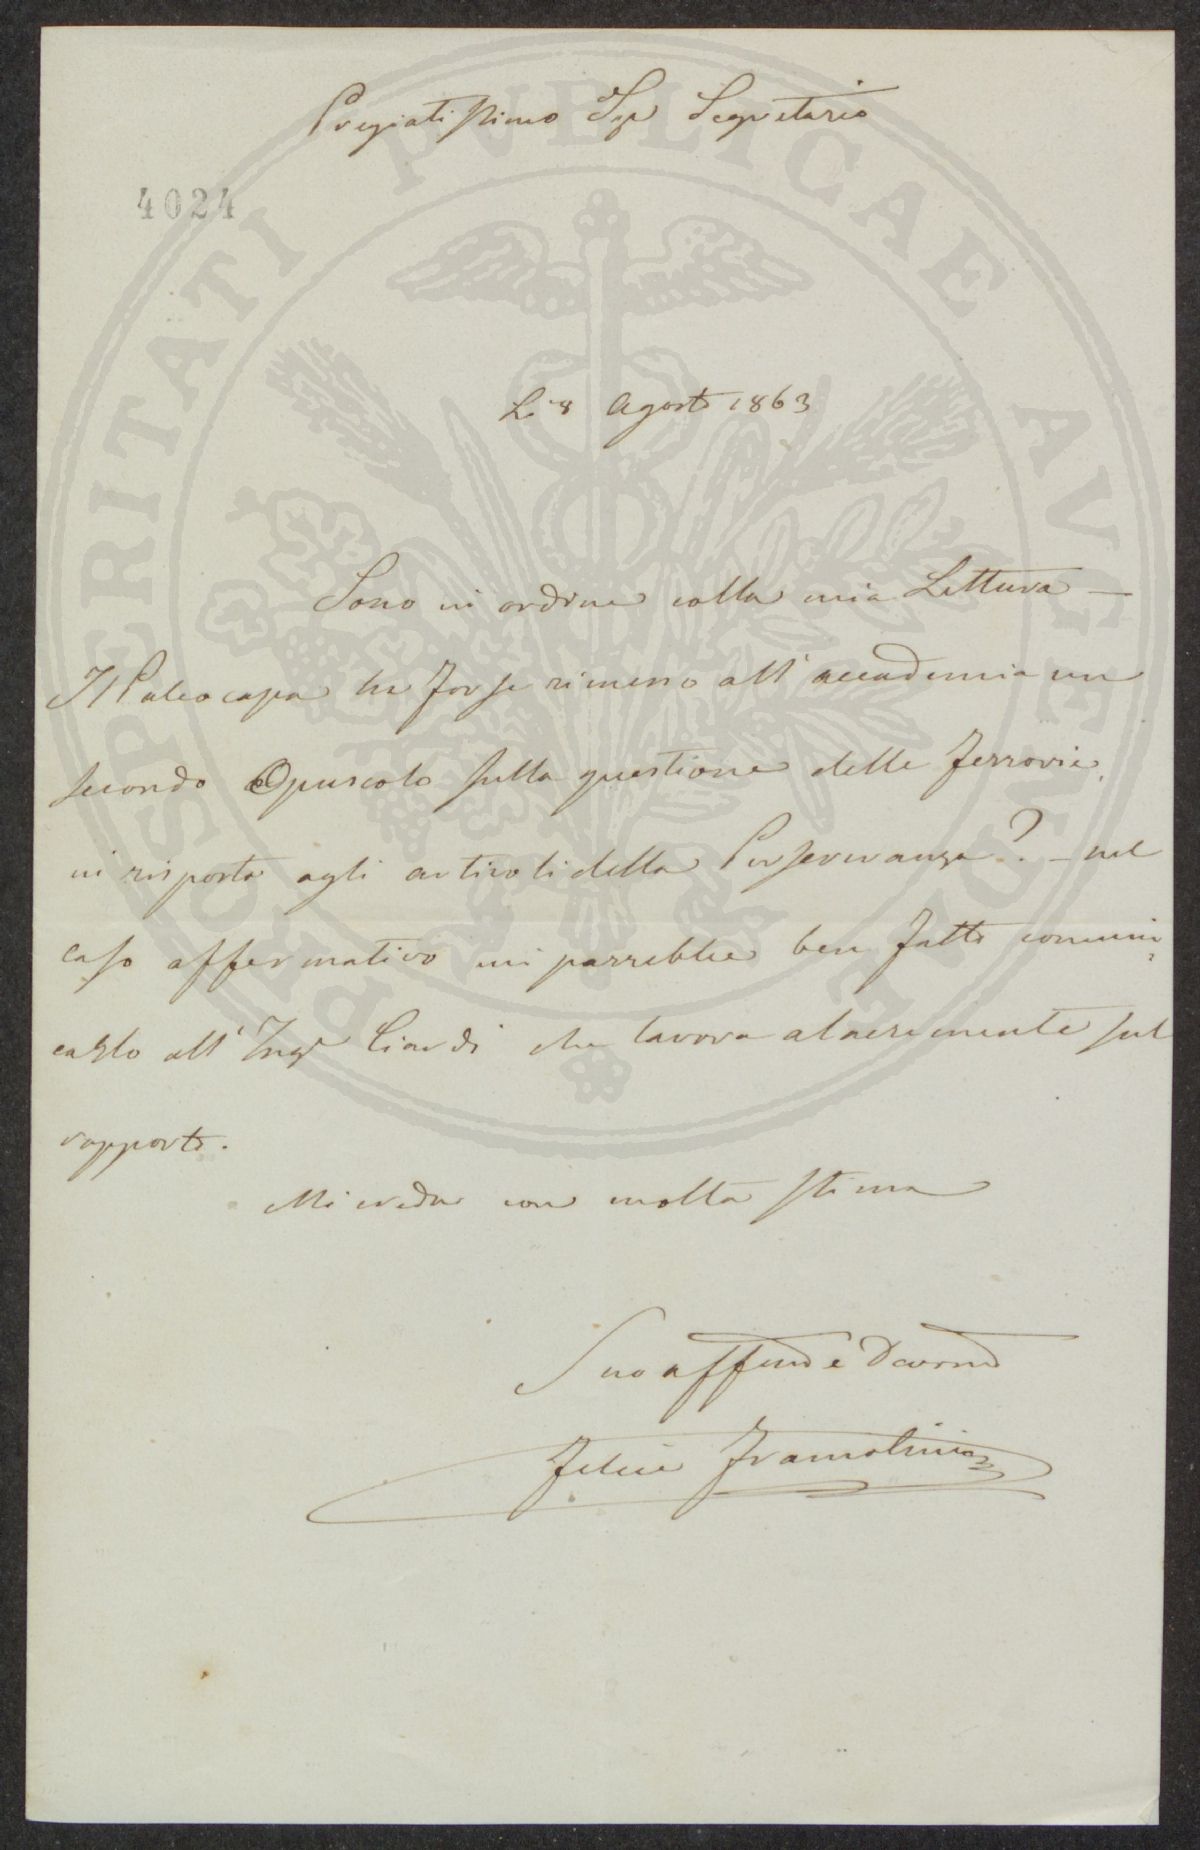 Pregiatissimo Sigr Segretario
4024
Li 8 Agosto 1863
Sono in ordine colla mia Lettura —
Il Paleocapa ha forse rimesso all'accademia un
secondo Opuscolo sulla questione delle ferrovie,
in risposta agli articoli della Perseveranza? – nel
caso affermativo mi parrebbe ben fatto comuni
carlo all'Ingr Ciardi che lavora alacremente sul
rapporto.
Mi creda con molta stima
Suo affmo e Devmo
Felice Francolini
PROSPERITATI PVBLICAE AVGENDAE